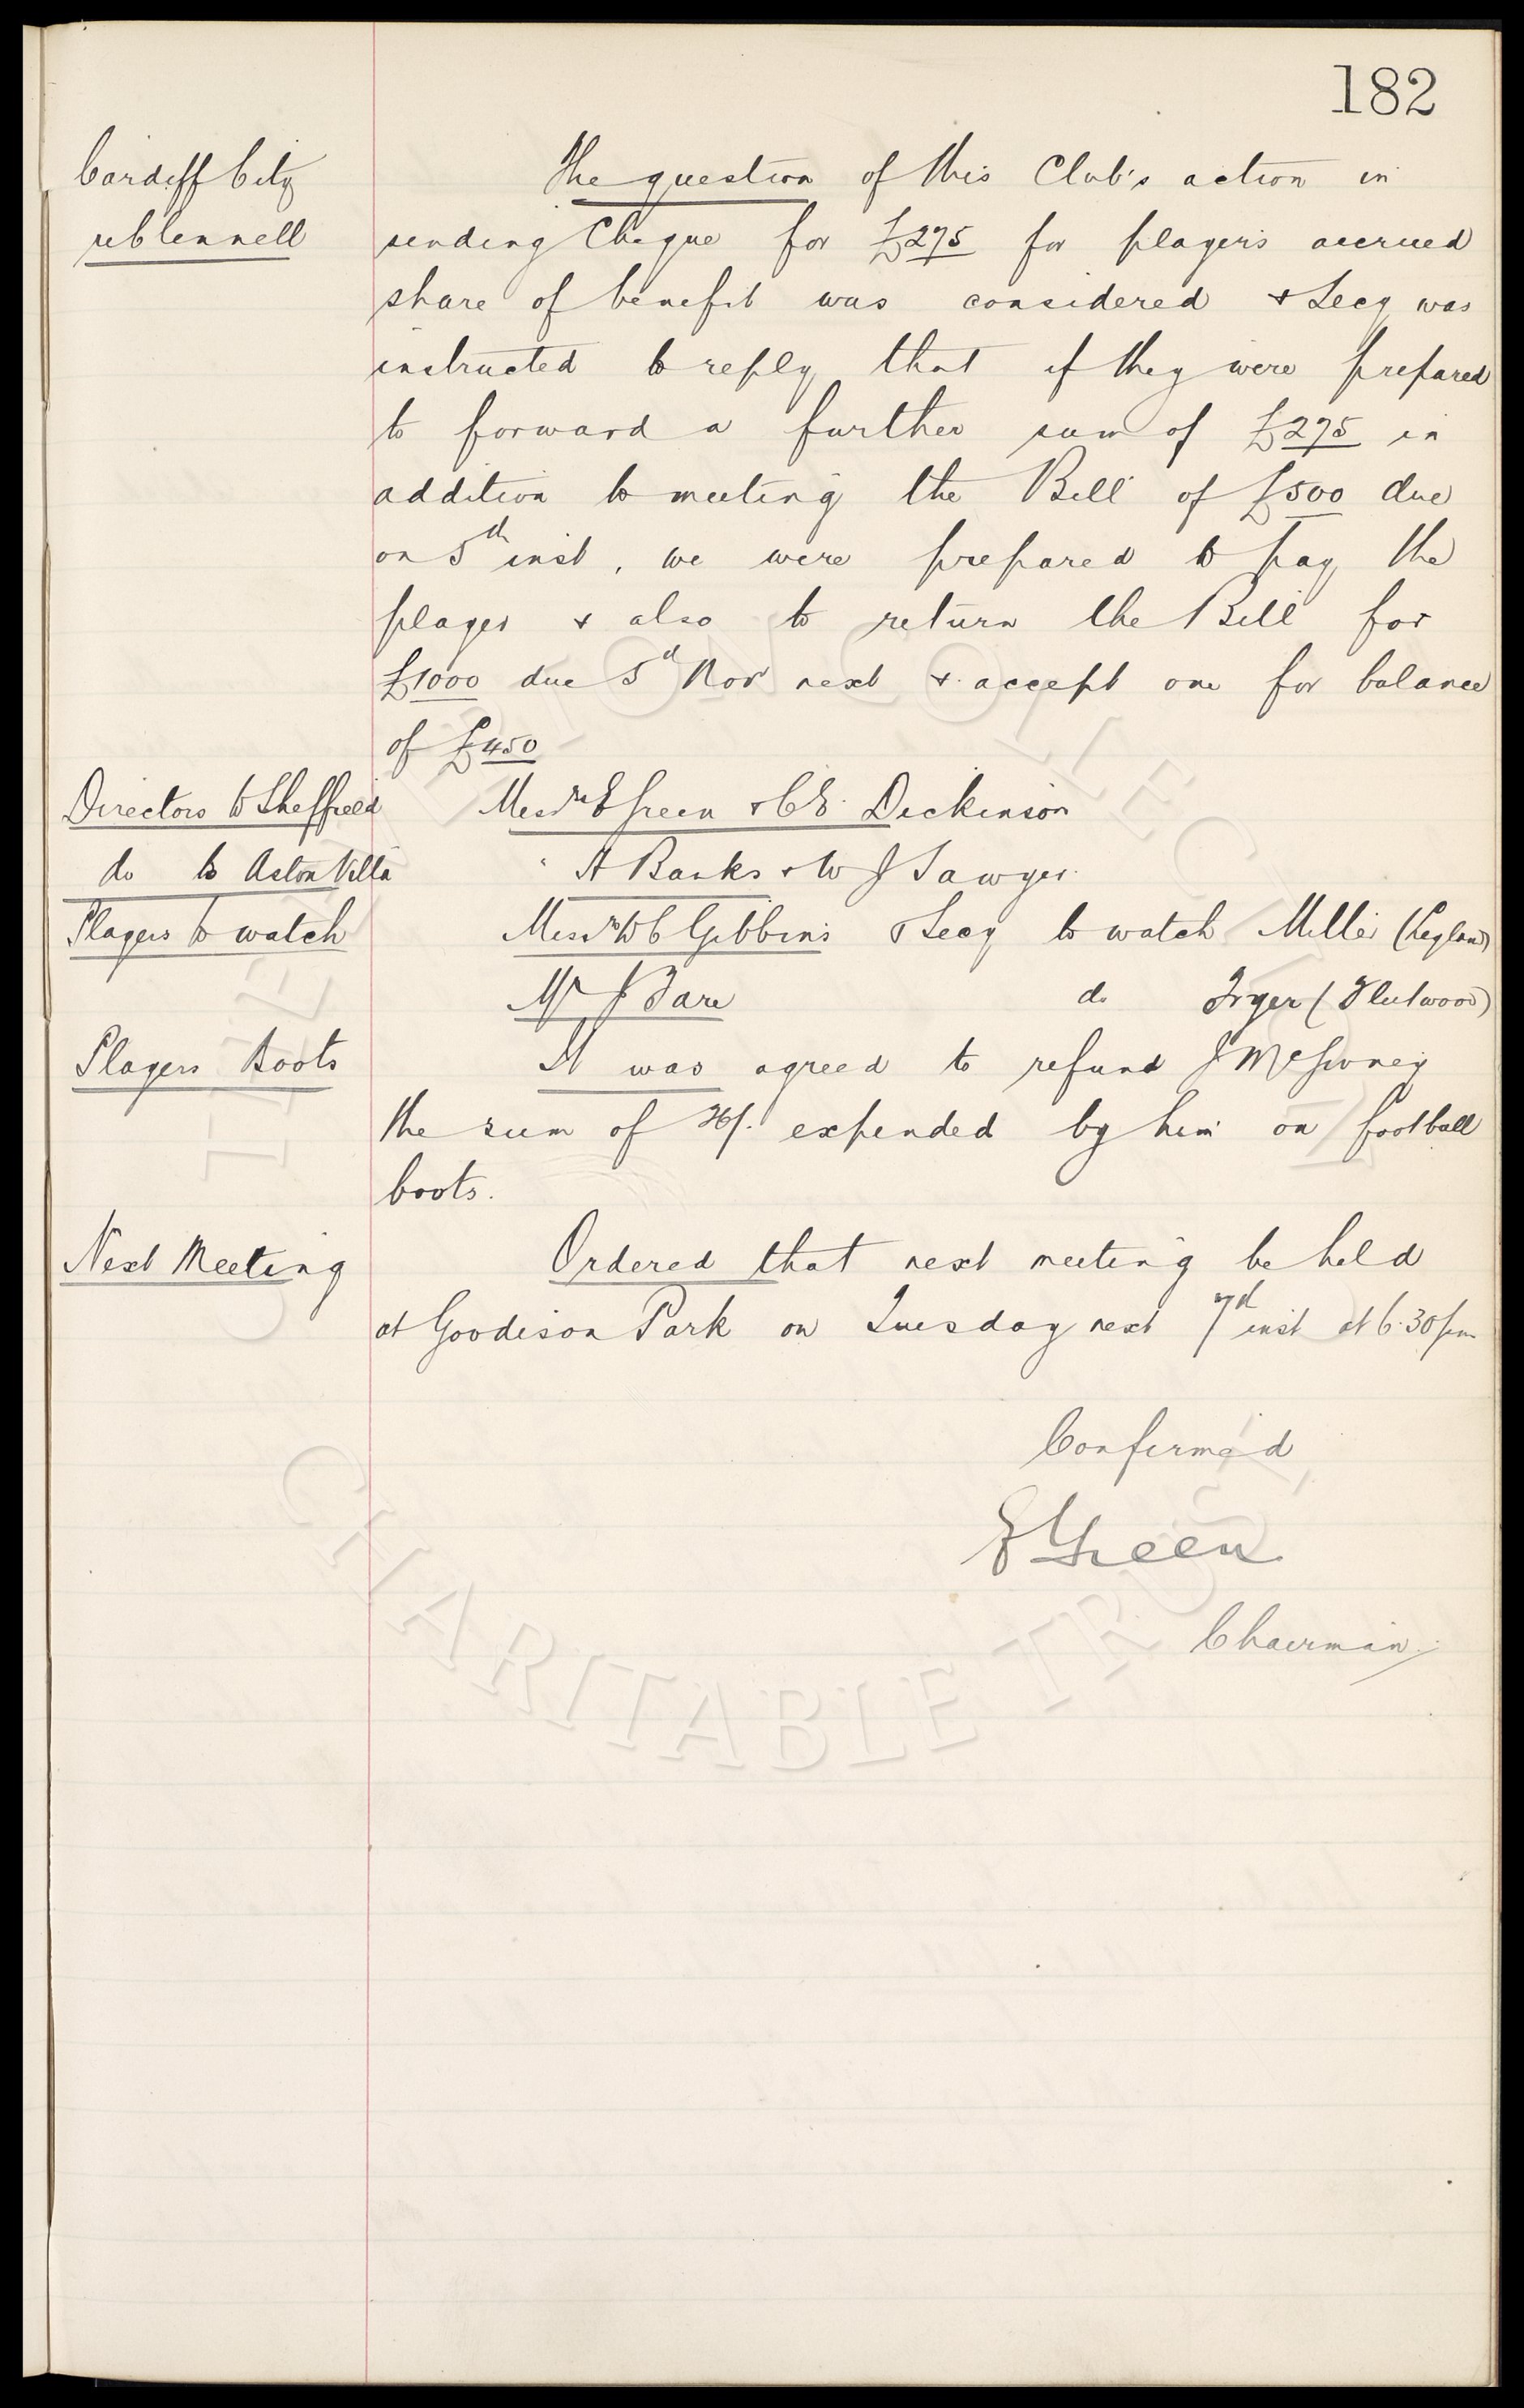 182
Cardiff City The question of this Club's action in
re Clennell sending Cheque for £275 for players accrued
share of benefit was considered & Secy was
instructed to reply that if they were prepared
to forward a further sum of £275 in
addition to meeting the Bill of £500 due
on 5th inst, we were prepared to pay the
player & also to return the Bill for
£1000 due 5th Nov next & accept one for balance
of £450
Directors to Sheffield Messrs E Green & C E Dickinson
do to Aston Villa " A Banks & W J Sawyer
Players to watch Messrs W C Gibbins & Secy to watch Miller (Leyland)
Mr J Fare do (Fleetwood)
Players Boots It was agreed to refund J McGivney
the sum of expended by him on football
boots.
Next Meeting Ordered that next meeting be held
at Goodison Park on Tuesday next 7th inst at 6.30pm
Confirmed
E Green
Chairman.
EVERTON COLLECTION
CHARITABLE TRUST